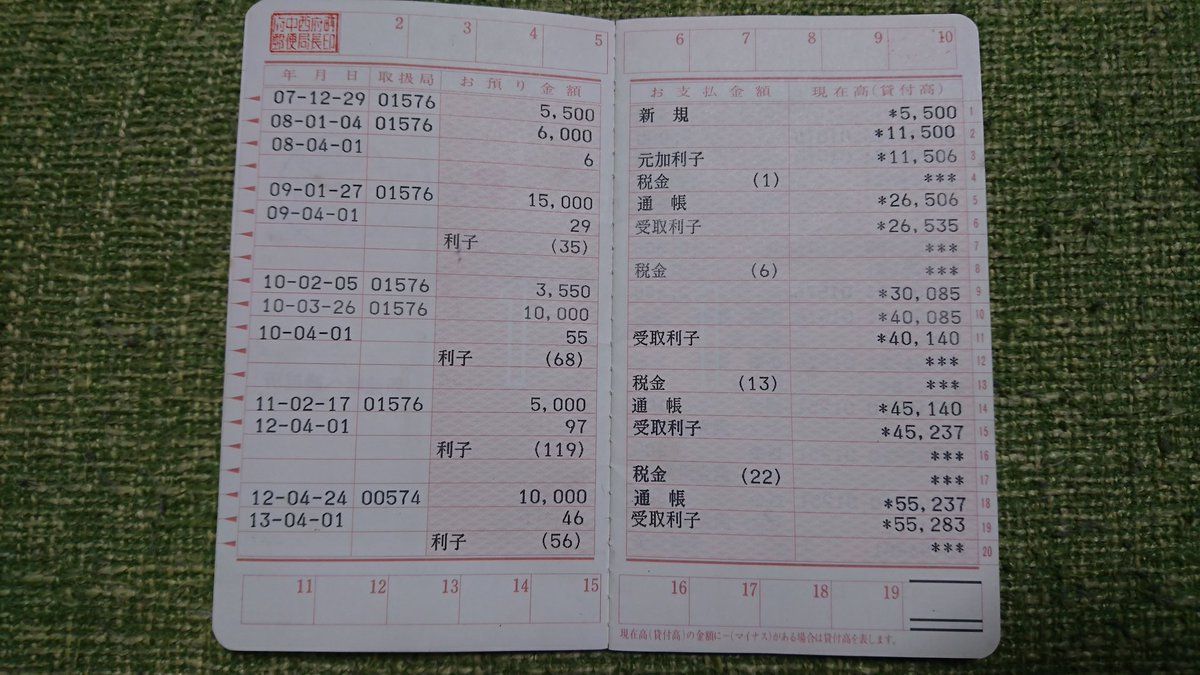 府中西府
郵便局長印
2 3 4 5 6 7 8 9 10
年月日 取扱局 お預り金額 お支払金額 現在高(貸付高)
07-12-29 01576 5,500 新規 *5,500 1
08-01-04 01576 6,000 *11,500 2
08-04-01 6 元加利子 *11,506 3
税金 (1) *** 4
09-01-27 01576 15,000 通帳 *26,506 5
09-04-01 29 受取利子 *26,535 6
利子 (35) *** 7
税金 (6) *** 8
10-02-05 01576 3,550 *30,085 9
10-03-26 01576 10,000 *40,085 10
10-04-01 55 受取利子 *40,140 11
利子 (68) *** 12
税金 (13) *** 13
11-02-17 01576 5,000 通帳 *45,140 14
12-04-01 97 受取利子 *45,237 15
利子 (119) *** 16
税金 (22) *** 17
12-04-24 00574 10,000 通帳 *55,237 18
13-04-01 46 受取利子 *55,283 19
利子 (56) *** 20
11 12 13 14 15 16 17 18 19
現在高(貸付高)の金額に-(マイナス)がある場合は貸付高を表します。